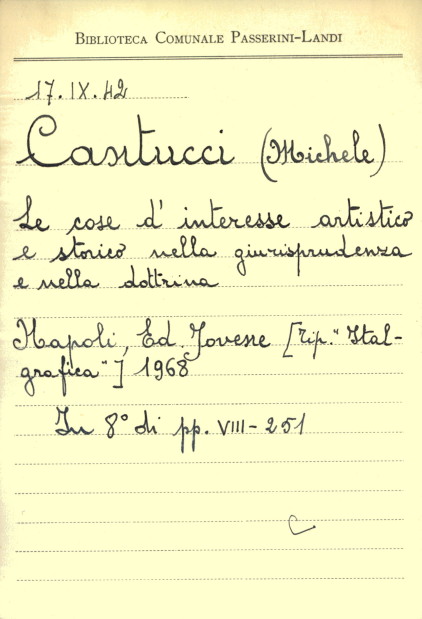 BIBLIOTECA COMUNALE PASSERINI-LANDI
17.IX.42
Cantucci (Michele)
Le cose d'interesse artistico
e storico nella giurisprudenza
e nella dottrina
Napoli, Ed. Jovene [Tip. "Ital-
grafica"] 1968
In 8° di pp. VIII-251
C